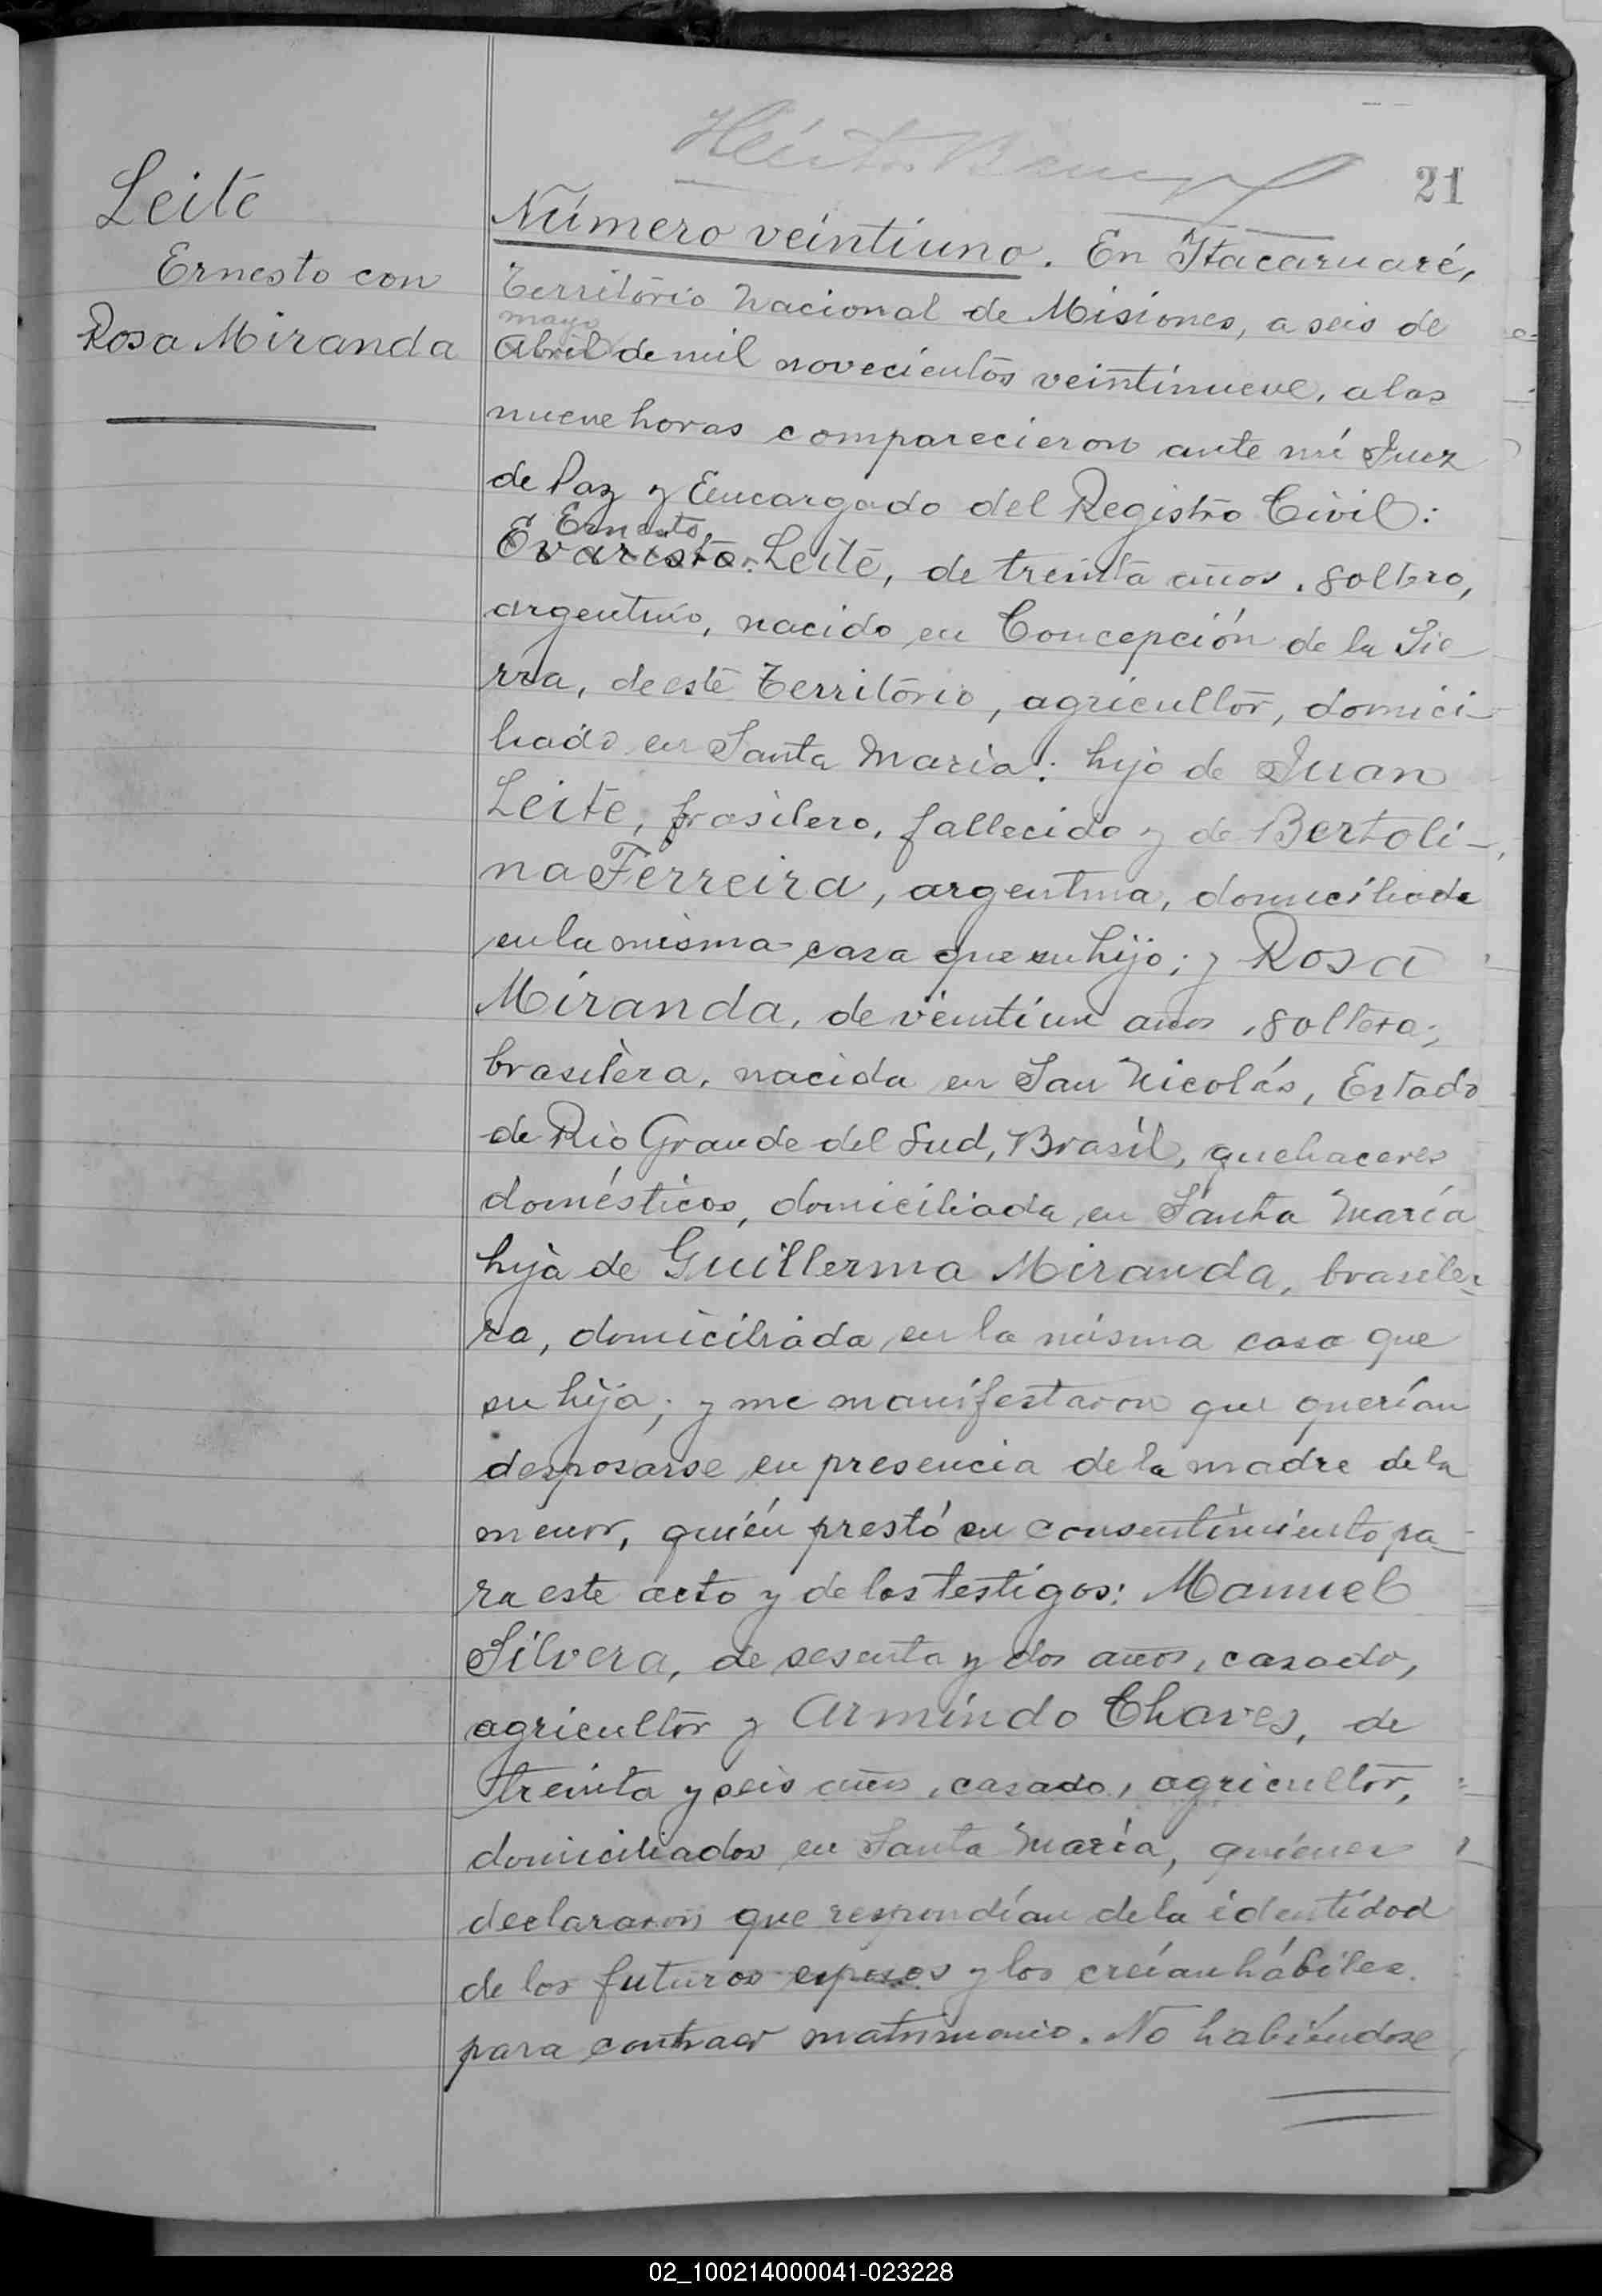 21
Leite
Ernesto con
Rosa Miranda
Número veintiuno. En Itacaruaré,
Territorio Nacional de Misiones, a seis de
mayo
Abril de mil novecientos veintinueve, a las
nueve horas comparecieron ante mí Juez
de Paz y Encargado del Registro Civil:
Ernesto
Evaristo Leite, de treinta años, soltero,
argentino, nacido en Concepción de la Sie
rra, de este Territorio, agricultor, domici
liado en Santa María: hijo de Juan
Leite, brasilero, fallecido y de Bertoli-
na Ferreira, argentina, domiciliada
en la misma casa que su hijo; y Rosa
Miranda, de veintiun años, soltera,
brasilera, nacida en San Nicolás, Estado
de Rio Grande del Sud, Brasil, quehaceres
domésticos, domiciliada en Santa María
hija de Guillerma Miranda, brasile-
ra, domiciliada en la misma casa que
su hija; y me manifestaron que querían
desposarse en presencia de la madre de la
menor, quién prestó su consentimiento pa-
ra este acto y de los testigos: Manuel
Silvera, de sesenta y dos años, casado,
agricultor y Armindo Chaves, de
treinta y seis años, casado, agricultor,
domiciliados en Santa María, quiénes
declararon que respondían de la identidad
de los futuros esposos y los creían hábiles
para contraer matrimonio. No habiéndose
02_100214000041-023228